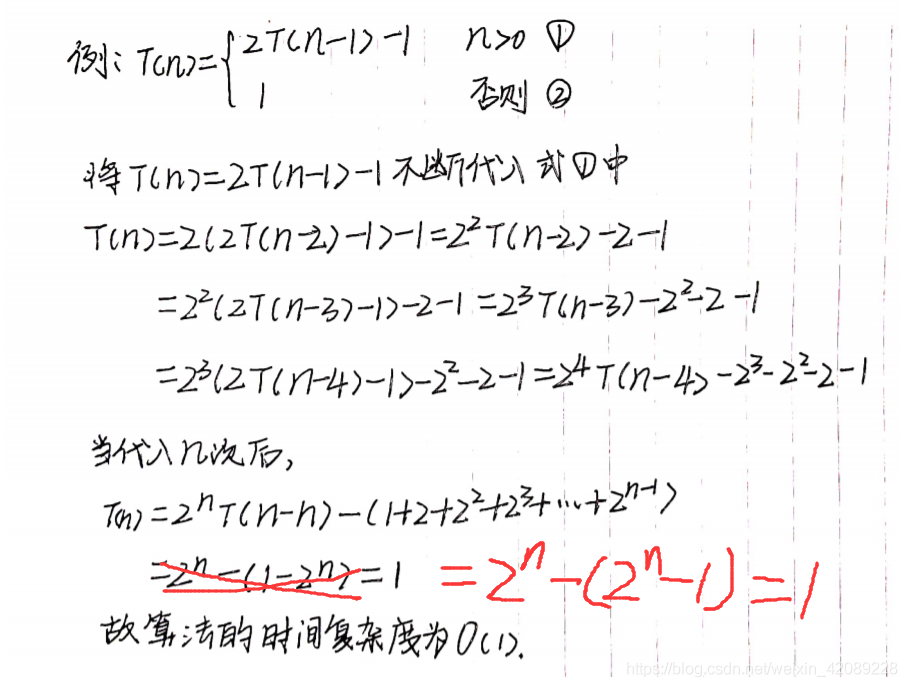 例: T(n)={2T(n-1)-1 n>0 ①
1 否则 ②
将T(n)=2T(n-1)-1不断代入式①中
T(n)=2(2T(n-2)-1)-1=2²T(n-2)-2-1
=2²(2T(n-3)-1)-2-1=2³T(n-3)-2²-2-1
=2³(2T(n-4)-1)-2²-2-1=2⁴T(n-4)-2³-2²-2-1
当代入n次后,
T(n)=2ⁿT(n-n)-(1+2+2²+2³+…+2ⁿ⁻¹)
=2ⁿ-(1-2ⁿ)=1 =2ⁿ-(2ⁿ-1)=1
故算法的时间复杂度为O(1).
https://blog.csdn.net/weixin_42089228